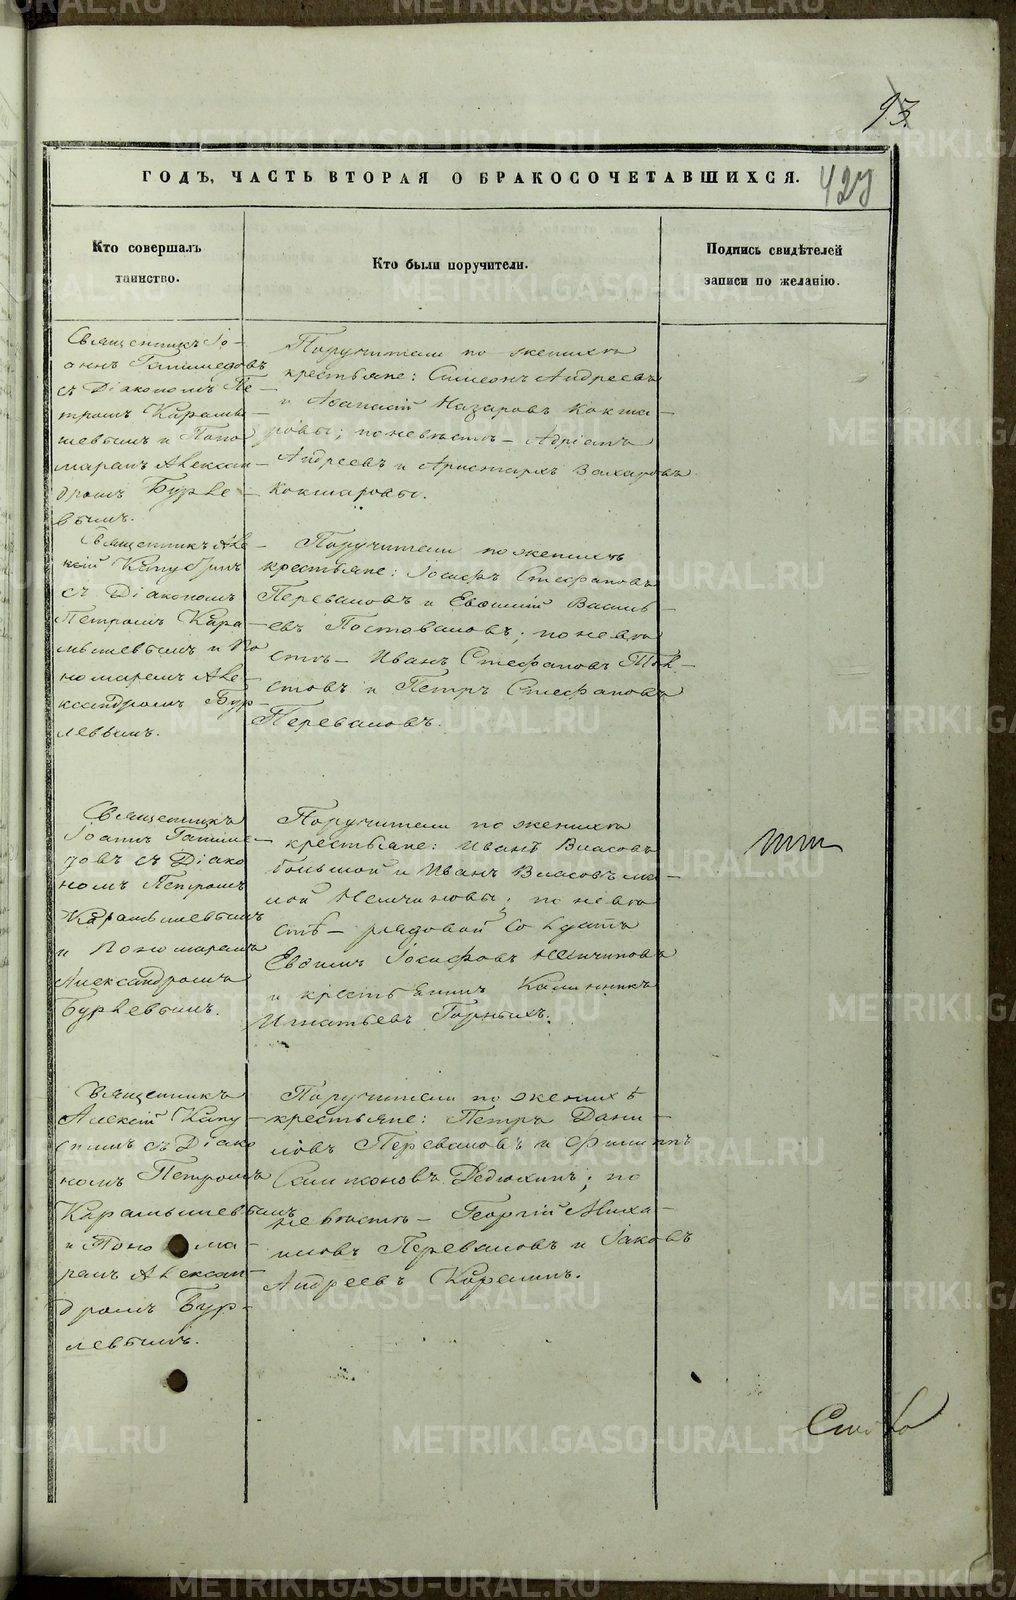 93.
ГОДЪ, ЧАСТЬ ВТОРАЯ О БРАКОСОЧЕТАВШИХСЯ.
427
Кто совершалъ
таинство.
Кто были поручители.
Подпись свидѣтелей
записи по желанію.
Священникъ Іо-
аннъ
съ Діакономъ Пе-
тромъ Карамы-
шевымъ и Поно
маремъ Алексан-
дромъ Бурле-
вымъ.
Поручители по женихѣ
крестьяне: Симеонъ Андреевъ
и Аѳанасій Назаровъ Кокша-
ровы; по невѣстѣ - Адріанъ
Андреевъ и Аристархъ Захаровъ
Кокшаровы.
Священникъ Але-
ксій Капустинъ
съ Діакономъ
Петромъ Кара-
мышевымъ и По
номаремъ Але-
ксандромъ Бур-
левымъ.
Поручители по женихѣ
крестьяне: Іосифъ Стефановъ
Переваловъ и Евѳимій Василь-
евъ Постоваловъ; по невѣ
стѣ - Иванъ Стефановъ Тол-
стовъ и Петръ Стефановъ
Переваловъ.
Священникъ
Іоаннъ
съ Діако
номъ Петромъ
Карамышевымъ
и Пономаремъ
Александромъ
Бурлевымъ.
Поручители по женихѣ
крестьяне: Иванъ Власовъ
большой и Иванъ Власовъ ма-
лой Немчиновы; по невѣ
стѣ - рядовой Солдатъ
Евѳимъ Іосифовъ Немчиновъ
и крестьянинъ Калинникъ
Игнатьевъ Горныхъ.
Священникъ
Алексій Капу-
стинъ съ Діако
номъ Петромъ
Карамышевымъ
и Понома-
ремъ Алексан-
дромъ Бур-
левымъ.
Поручители по женихѣ
крестьяне: Петръ Дани-
ловъ Переваловъ и Филиппъ
Самсоновъ Дедюхинъ; по
невѣстѣ - Георгій Миха-
иловъ Переваловъ и Іаковъ
Андреевъ Карелинъ.
METRIKI.GASO-URAL.RU